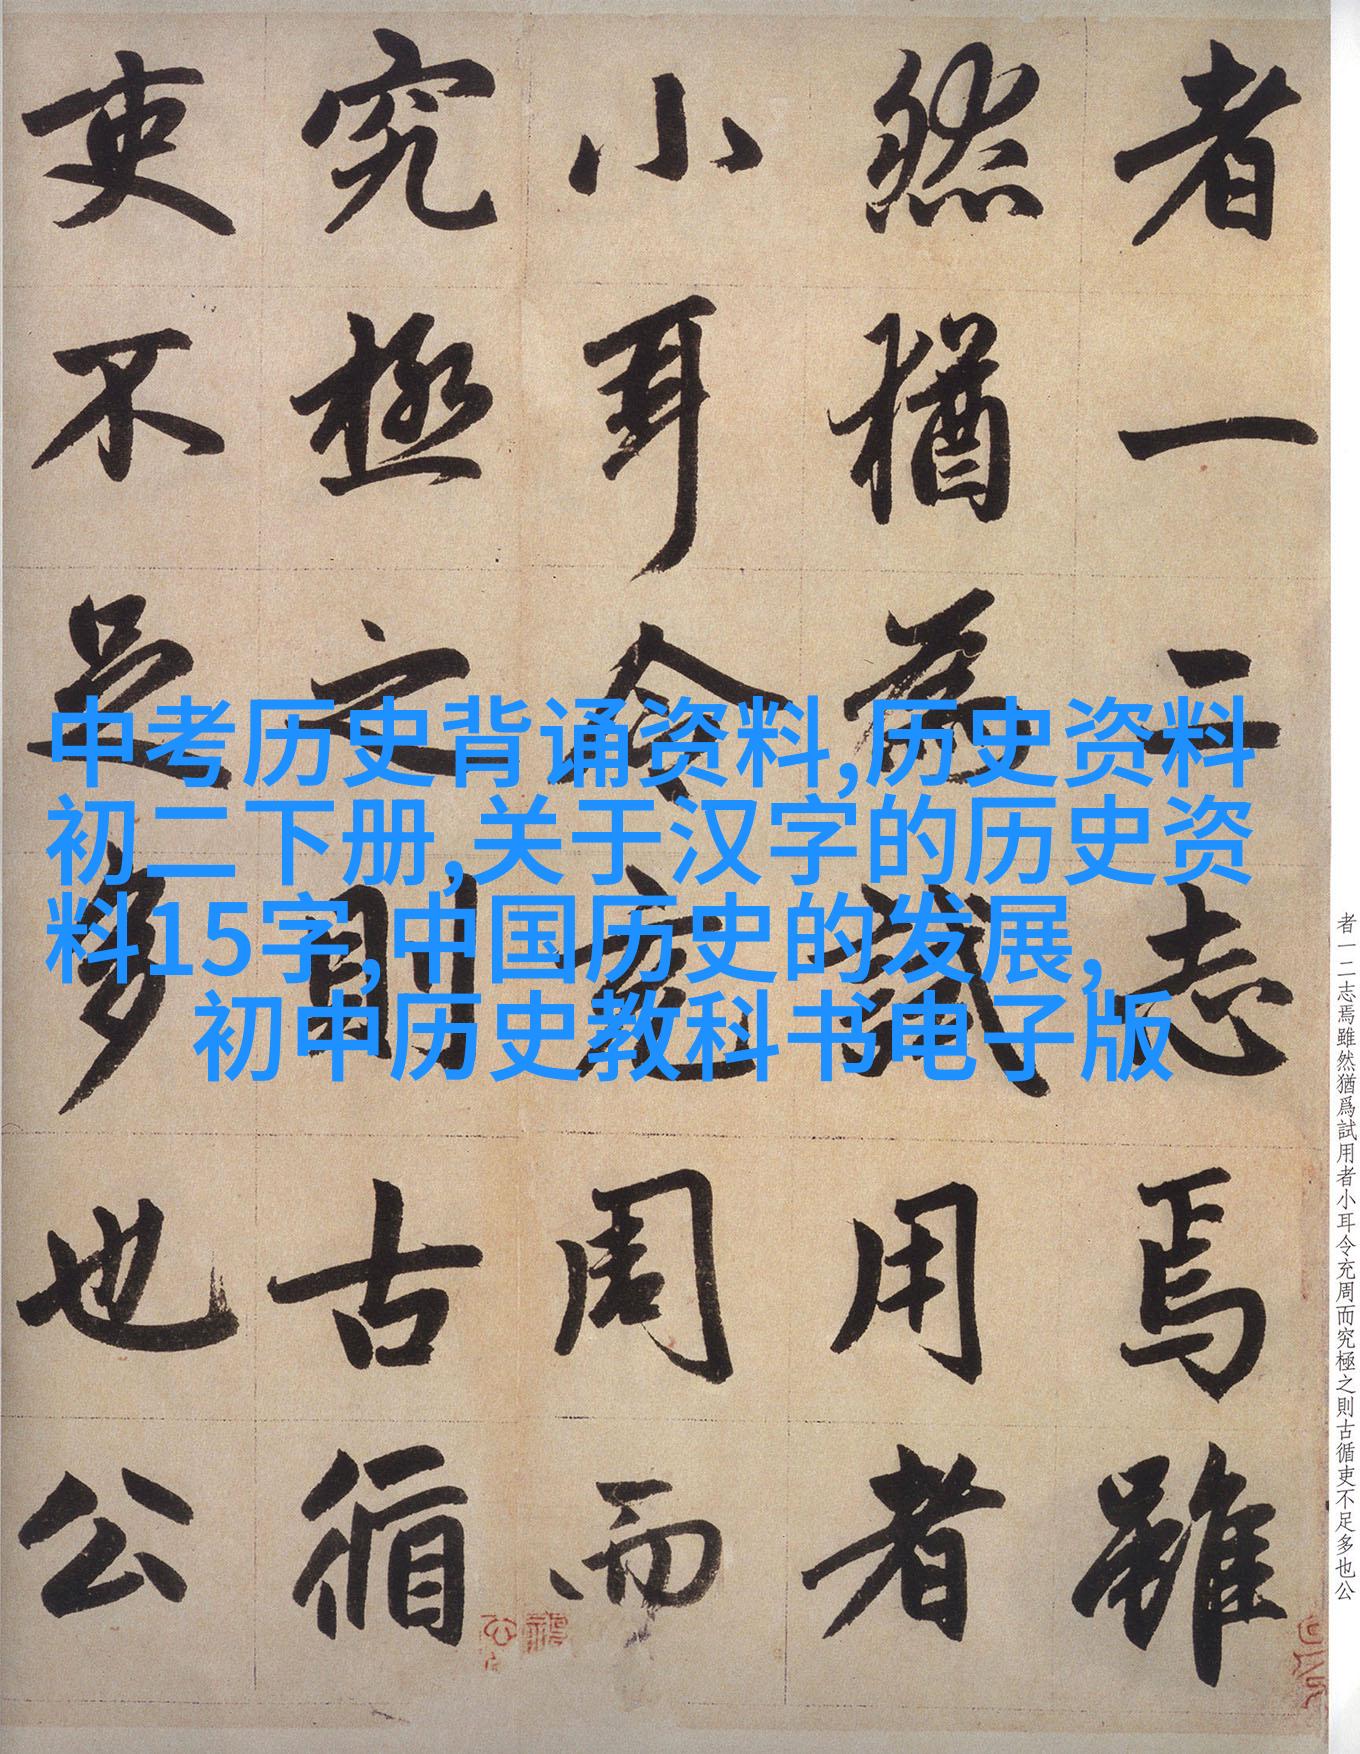 者一二志焉雖
然猶為試用者
小耳令充周而
究極之則古循
吏不足多也公
中考历史背诵资料,历史资料
初二下册,关于汉字的历史资
料15字,中国历史的发展,
初中历史教科书电子版
者一二志焉雖然猶爲試用者小耳令充周而究極之則古循吏不足多也公